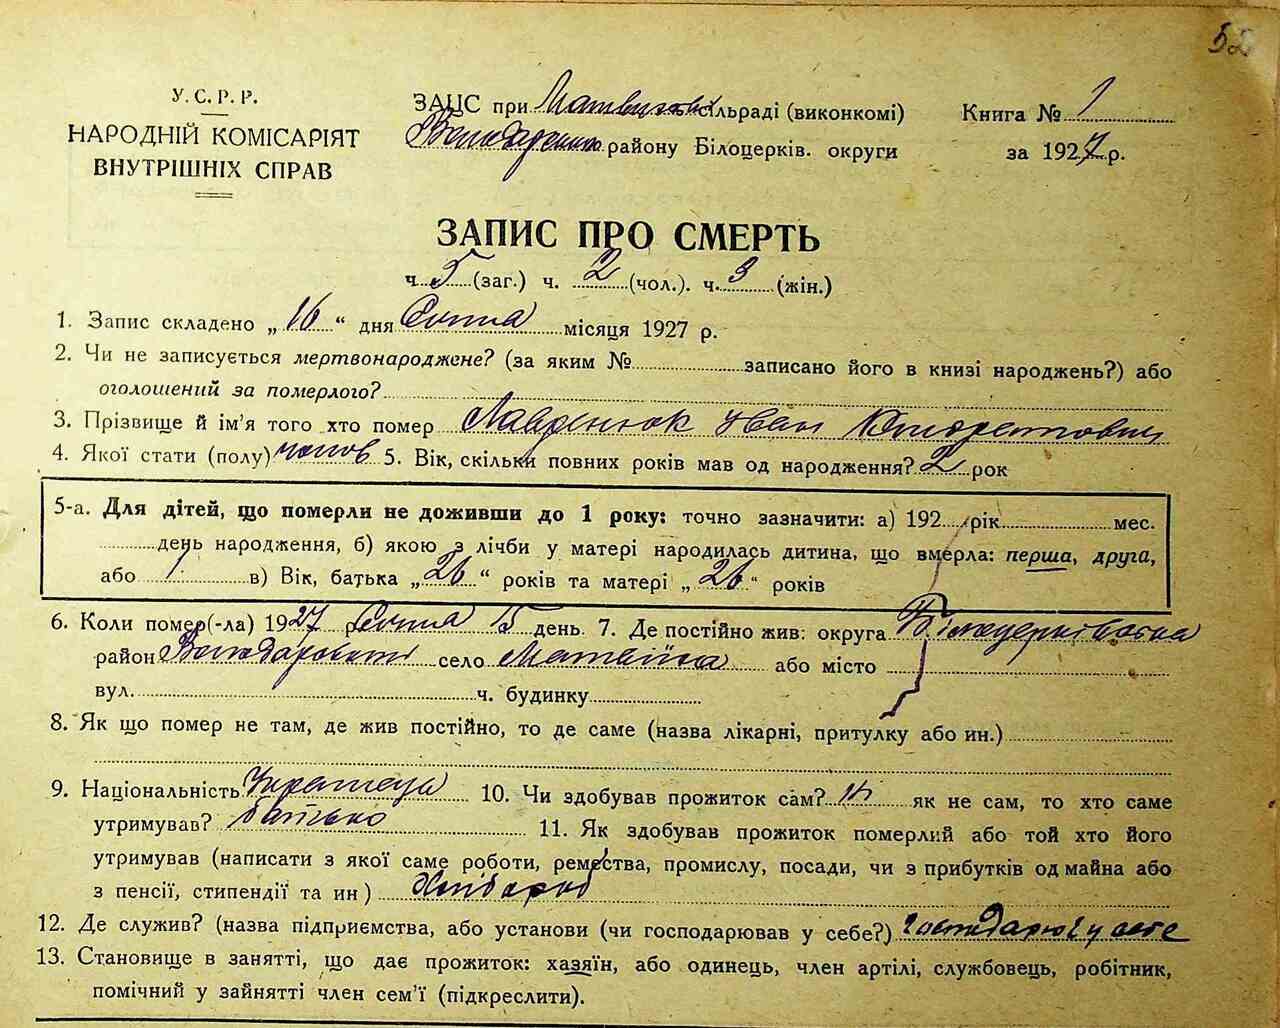 52
У.С.Р.Р.
НАРОДНІЙ КОМІСАРІЯТ
ВНУТРІШНІХ СПРАВ
ЗАЦС при сільраді (виконкомі)
району Білоцерків. округи
Книга № 1
за 1927 р.
ЗАПИС ПРО СМЕРТЬ
ч. 5 (заг.) ч. 2 (чол.). ч. 3 (жін.)
1. Запис складено „16“ дня Січня місяця 1927 р.
2. Чи не записується мертвонароджене? (за яким № записано його в книзі народжень?) або
оголошений за померлого?
3. Прізвище й ім'я того хто помер Іван Кіндратович
4. Якої стати (полу) чолов 5. Вік, скільки повних років мав од народження? 2 рок
5-а. Для дітей, що померли не доживши до 1 року: точно зазначити: а) 192 рік мес.
день народження, б) якою з лічби у матері народилась дитина, що вмерла: перша, друга,
або 1 в) Вік, батька „26“ років та матері „26“ років
6. Коли помер(-ла) 1927 р Січня 15 день. 7. Де постійно жив: округа Білоцерківська
район Володарський село Матвійха або місто
вул. ч. будинку
8. Як що помер не там, де жив постійно, то де саме (назва лікарні, притулку або ин.)
9. Національність Українець 10. Чи здобував прожиток сам? ні як не сам, то хто саме
утримував? батько 11. Як здобував прожиток померлий або той хто його
утримував (написати з якої саме роботи, ремества, промислу, посади, чи з прибутків од майна або
з пенсії, стипендії та ин) Хлібороб
12. Де служив? (назва підприємства, або установи (чи господарював у себе?) господарює у себе
13. Становище в занятті, що дає прожиток: хазяїн, або одинець, член артілі, службовець, робітник,
помічний у зайнятті член сем'ї (підкреслити).